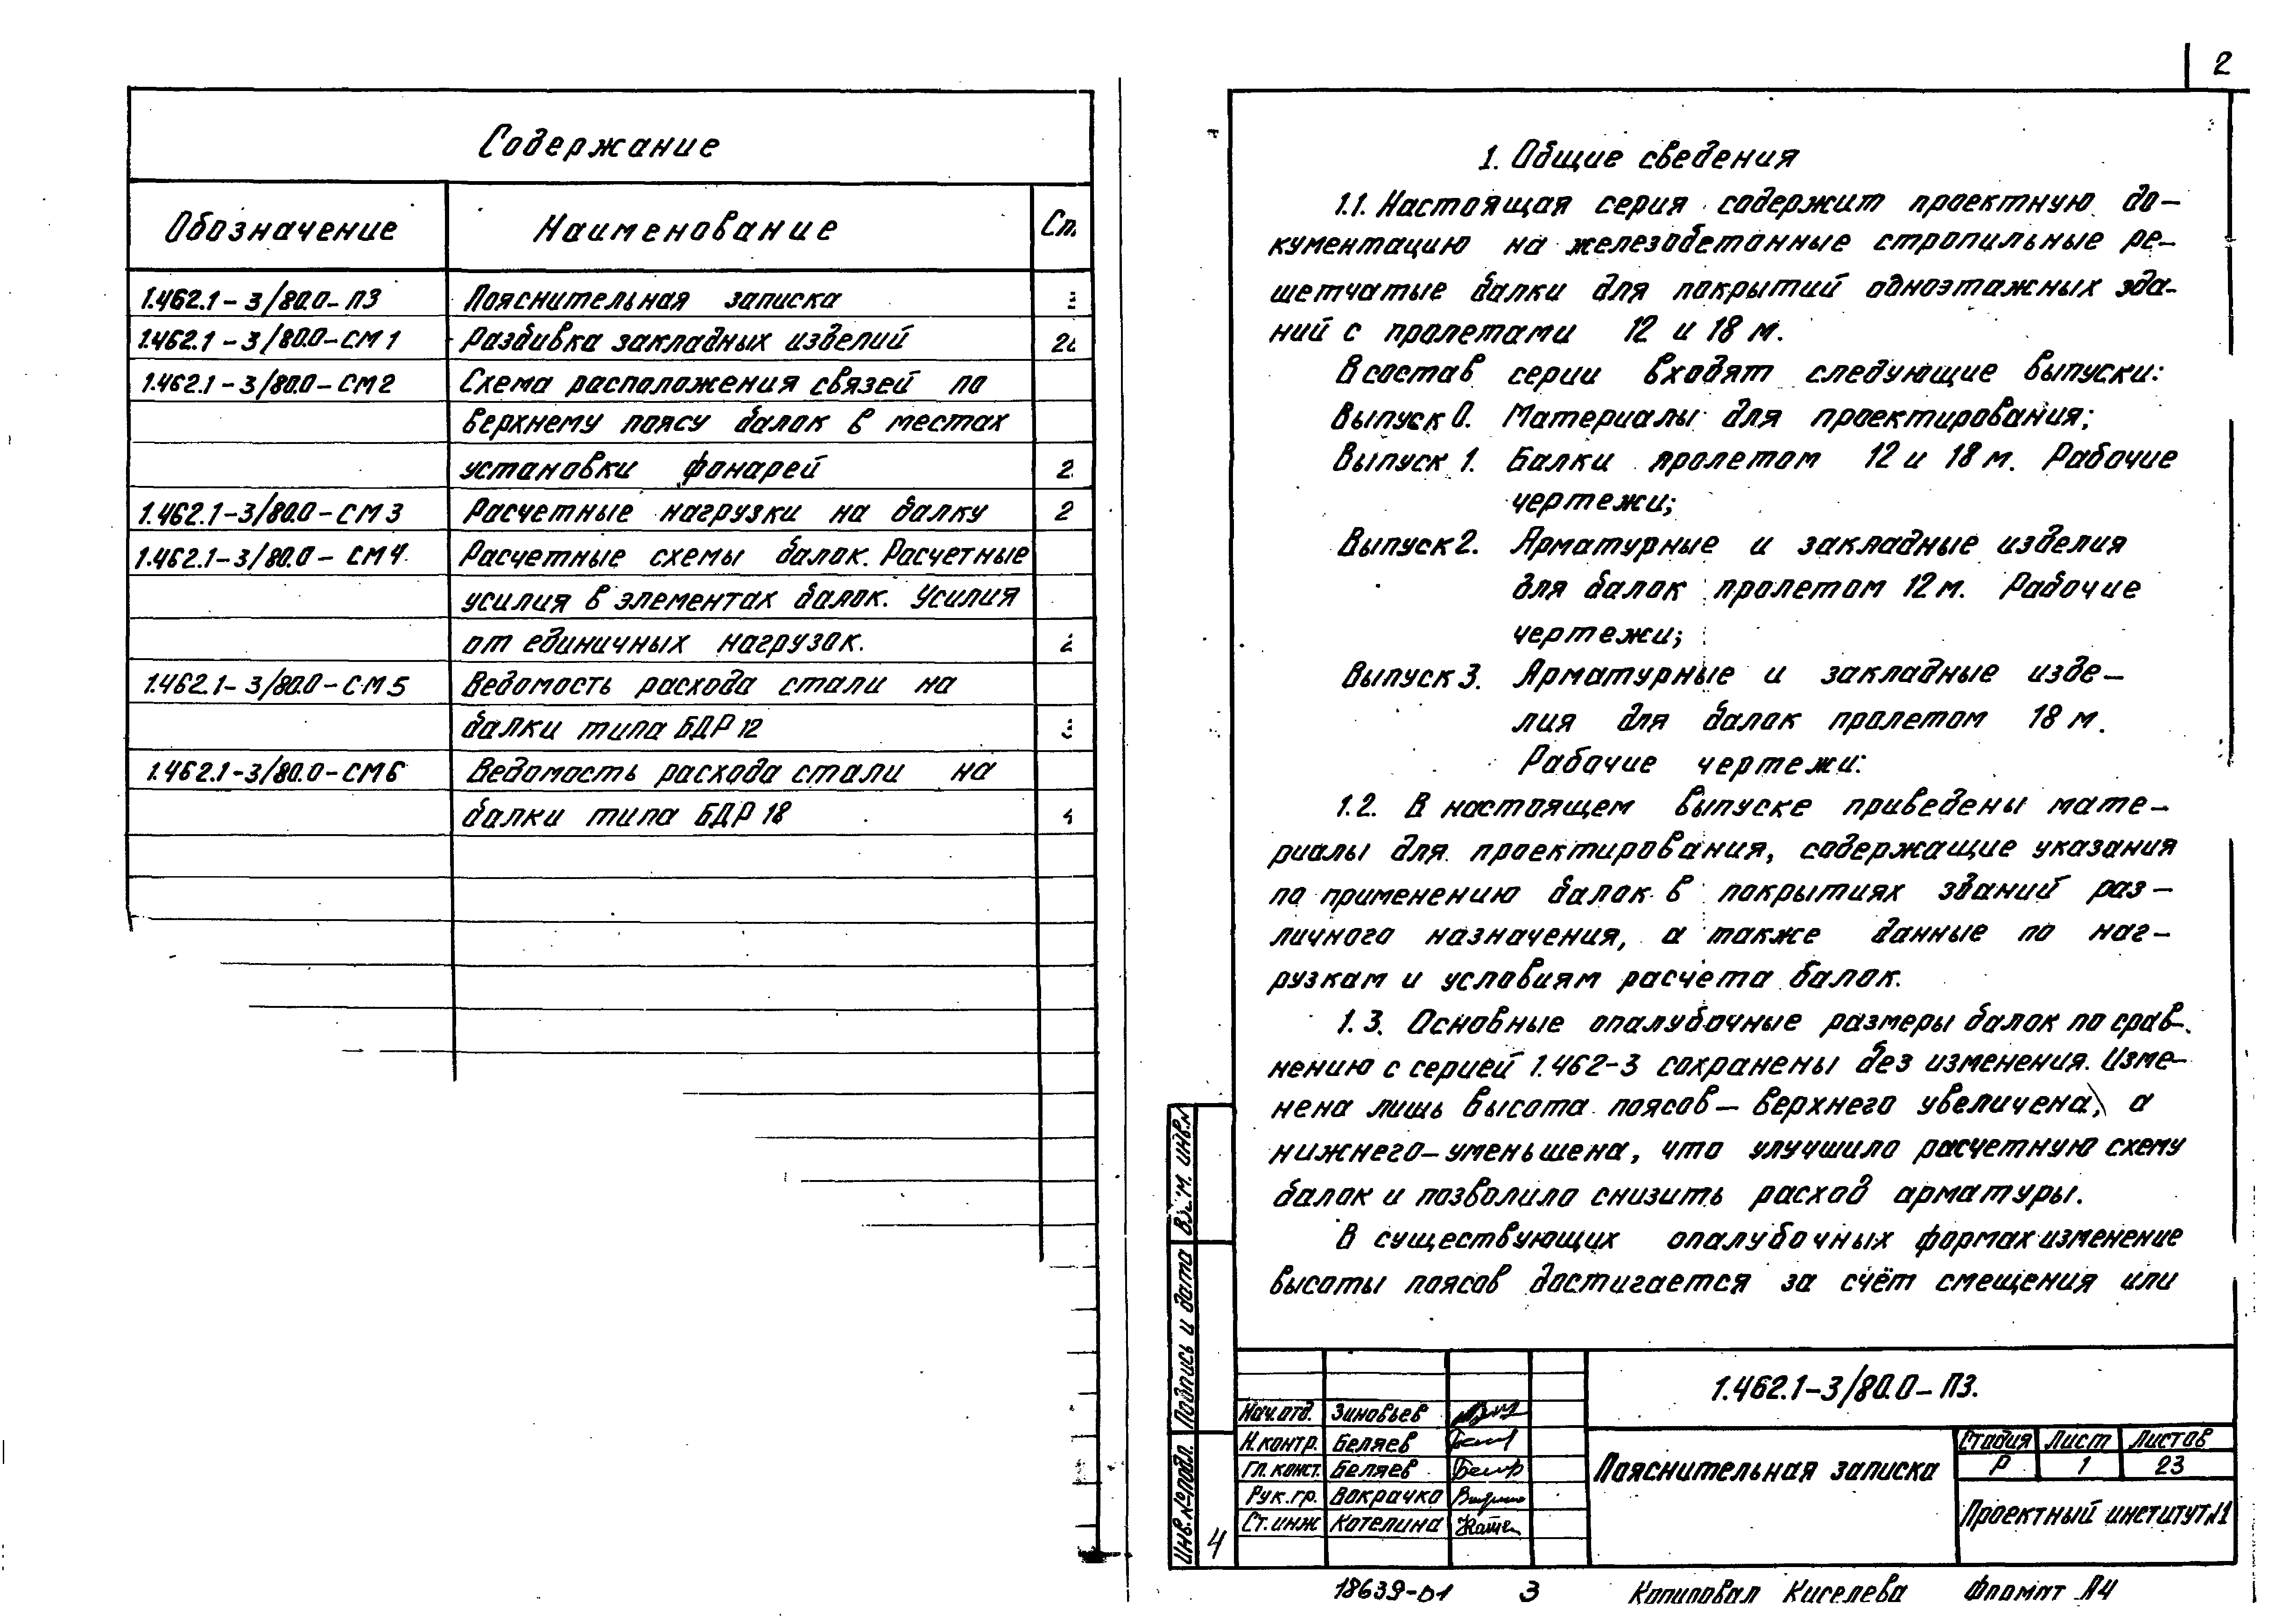 Содержание
Обозначение Наименование
1.462.1-3/80.0-ПЗ Пояснительная записка
1.462.1-3/80.0-СМ1 Разбивка закладных изделий
1.462.1-3/80.0-СМ2 Схема расположения связей по
верхнему поясу балок в местах
установки фонарей
1.462.1-3/80.0-СМ3 Расчетные нагрузки на балку
1.462.1-3/80.0-СМ4 Расчетные схемы балок. Расчетные
усилия в элементах балок. Усилия
от единичных нагрузок.
1.462.1-3/80.0-СМ5 Ведомость расхода стали на
балки типа БДР 12
1.462.1-3/80.0-СМ6 Ведомость расхода стали на
балки типа БДР 18
2
1. Общие сведения
1.1. Настоящая серия содержит проектную до-
кументацию на железобетонные стропильные ре-
шетчатые балки для покрытий одноэтажных зда-
ний с пролетами 12 и 18 м.
В состав серии входят следующие выпуски:
Выпуск 0. Материалы для проектирования;
Выпуск 1. Балки пролетом 12 и 18 м. Рабочие
чертежи;
Выпуск 2. Арматурные и закладные изделия
для балок пролетом 12 м. Рабочие
чертежи;
Выпуск 3. Арматурные и закладные изде-
лия для балок пролетом 18 м.
Рабочие чертежи.
1.2. В настоящем выпуске приведены мате-
риалы для проектирования, содержащие указания
по применению балок в покрытиях зданий раз-
личного назначения, а также данные по наг-
рузкам и условиям расчета балок.
1.3. Основные опалубочные размеры балок по срав-
нению с серией 1.462-3 сохранены без изменения. Изме-
нена лишь высота поясов - верхнего увеличена, а
нижнего - уменьшена, что улучшило расчетную схему
балок и позволило снизить расход арматуры.
В существующих опалубочных формах изменение
высоты поясов достигается за счёт смещения или
Взам. инв. №
Подпись и дата
Инв. № подл.
4
1.462.1-3/80.0-ПЗ.
Нач. отд. Зиновьев
Н. контр. Беляев
Гл. конст. Беляев
Рук. гр. Вокрачко
Ст. инж Котелина
Пояснительная записка
Стадия Лист Листов
Р 1 23
Проектный институт №1
18639-01 3 Копировал Киселева Формат А4